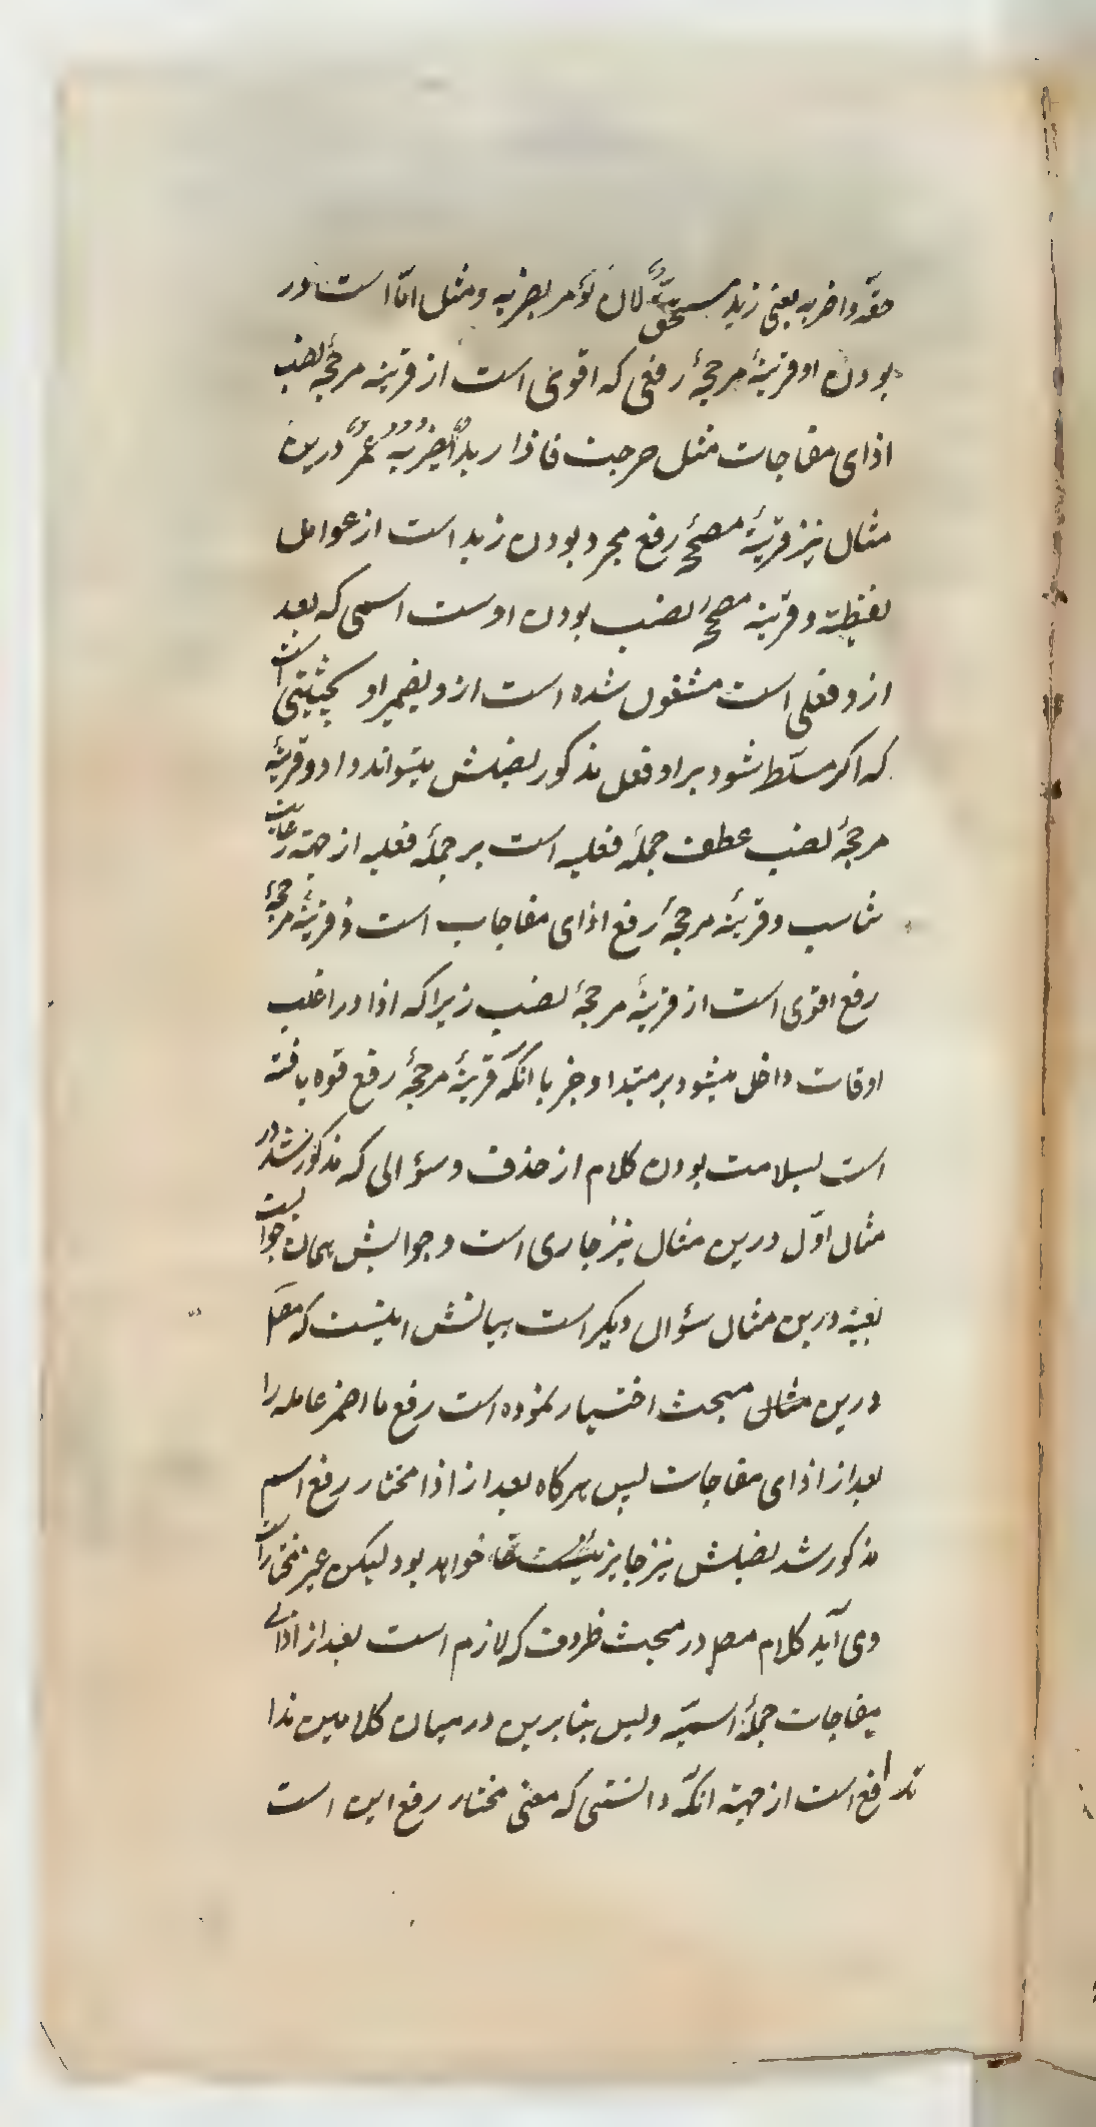 حقه واضربه یعنی زید مستحق لان یؤمر بضربه و مثل امّا است در
بودن او قرینهٔ مرجحهٔ رفعی که اقوی است از قرینه مرجحهٔ نصب
اذای مفاجات مثل خرجت فاذا زید یضربه عمرو درین
مثال نیز قرینهٔ مصححهٔ رفع مجرد بودن زید است از عوامل
لفظیة و قرینه مصححهٔ نصب بودن اوست اسمی که بعد
ازو فعلی است مشغول شده است ازو بضمیر او بحیثیتی است
که اکر مسلّط شود بر او فعل مذکور نصبش میتواند داد و قرینهٔ
مرجحهٔ نصب عطف جملهٔ فعلیه است بر جملهٔ فعلیه از جهة رعایت
تناسب و قرینهٔ مرجحهٔ رفع اذای مفاجات است و قرینهٔ مرجحهٔ
رفع اقوی است از قرینهٔ مرجحهٔ نصب زیرا که اذا در اغلب
اوقات داخل میشود بر مبتدا و خبر با انکه قرینهٔ مرجحهٔ رفع قوه یافته
است بسلامت بودن کلام از حذف و سؤالی که مذکور شد در
مثال اوّل درین مثال نیز جاری است و جوابش همان جوابست
بعینه درین مثال سؤال دیکر است بیانش اینست که مصـ
درین مثال مبحث اختیار نموده است رفع ما اضمر عامله را
بعد از اذای مفاجات پس هرکاه بعد از اذا مختار رفع اسم
مذکور شد نصبش نیز جایز خواهد بود لیکن غیر مختار است
و می آید کلام مصـ در مبحث ظروف که لازم است بعد از اذای
مفاجات جملهٔ اسمیّه و پس بنابرین در میان کلامین تدا
تدافع است از جهة انکه دانستی که معنی مختار رفع این است